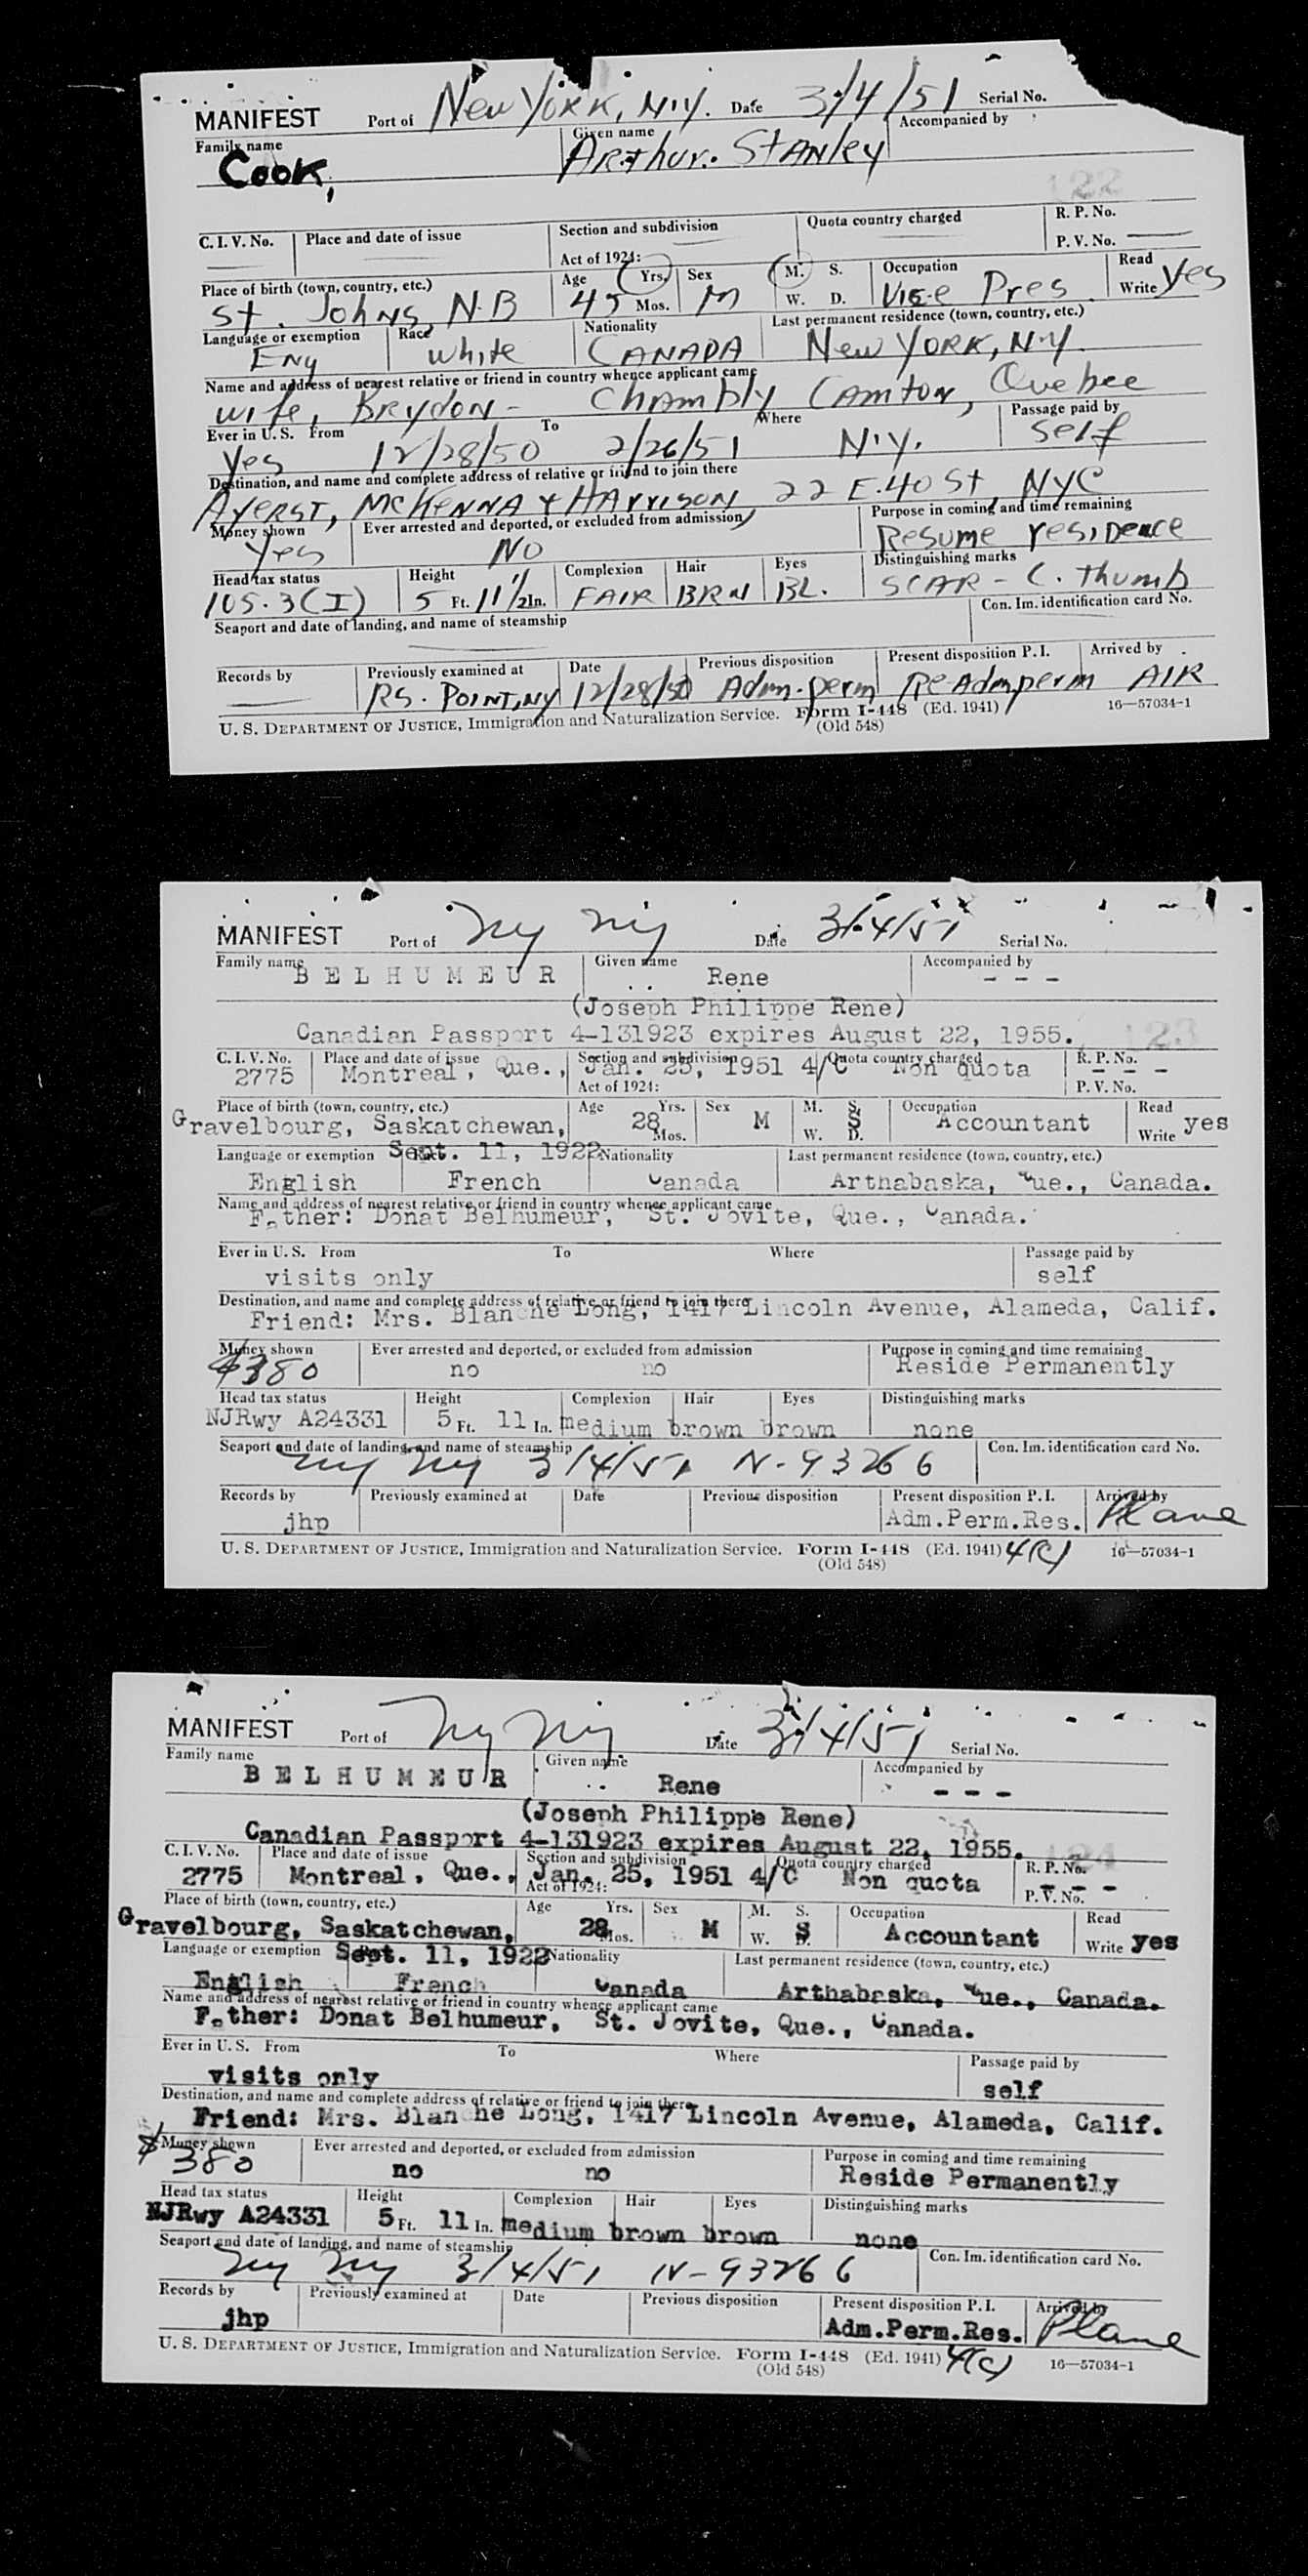 MANIFEST Port of New York, N.Y. Date 3/4/51 Serial No.
Family name Given name Accompanied by
Cook, Arthur. Stanley
122
C. I. V. No. Place and date of issue Section and subdivision Quota country charged R. P. No.
Act of 1924: P. V. No.
Place of birth (town, country, etc.) Age Yrs. Sex M. S. Occupation Read
St. Johns N.B 45 Mos. M W. D. Vice Pres. Write Yes
Language or exemption Race Nationality Last permanent residence (town, country, etc.)
Eng White CANADA New York, N.Y.
Name and address of nearest relative or friend in country whence applicant came
wife, Brydon - Chambly Camton, Quebec
Ever in U. S. From To Where Passage paid by
Yes 12/28/50 2/26/51 N.Y. Self
Destination, and name and complete address of relative or friend to join there
Ayerst, McKenna & Harrison 22 E. 40 St, NYC
Money shown Ever arrested and deported, or excluded from admission Purpose in coming and time remaining
Yes No Resume residence
Head tax status Height Complexion Hair Eyes Distinguishing marks
105.3(I) 5 Ft. 11 1/2 In. FAIR BRN BL. SCAR - L. thumb
Seaport and date of landing, and name of steamship Con. Im. identification card No.
Records by Previously examined at Date Previous disposition Present disposition P. I. Arrived by
RS. POINT, NY 12/28/50 Adm. perm ReAdmperm AIR
U. S. DEPARTMENT OF JUSTICE, Immigration and Naturalization Service. Form I-448 (Ed. 1941) 16—57034-1
(Old 548)
MANIFEST Port of NY NY Date 3/4/51 Serial No.
Family name Given name Accompanied by
BELHUMEUR Rene - - -
(Joseph Philippe Rene)
Canadian Passport 4-131923 expires August 22, 1955. 123
C. I. V. No. Place and date of issue Section and subdivision Quota country charged R. P. No.
2775 Montreal, Que., Jan. 25, 1951 4/C Non quota - - -
Act of 1924: P. V. No.
Place of birth (town, country, etc.) Age Yrs. Sex M. S. Occupation Read
Gravelbourg, Saskatchewan, 28 Mos. M W. D. S Accountant Write yes
Sept. 11, 1922
Language or exemption Race Nationality Last permanent residence (town, country, etc.)
English French Canada Arthabaska, Que., Canada.
Name and address of nearest relative or friend in country whence applicant came
Father: Donat Belhumeur, St. Jovite, Que., Canada.
Ever in U. S. From To Where Passage paid by
visits only self
Destination, and name and complete address of relative or friend to join there
Friend: Mrs. Blanche Long, 1417 Lincoln Avenue, Alameda, Calif.
Money shown Ever arrested and deported, or excluded from admission Purpose in coming and time remaining
$380 no no Reside Permanently
Head tax status Height Complexion Hair Eyes Distinguishing marks
NJRwy A24331 5 Ft. 11 In. medium brown brown none
Seaport and date of landing, and name of steamship Con. Im. identification card No.
NY NY 3/4/51 N-93266
Records by Previously examined at Date Previous disposition Present disposition P. I. Arrived by
jhp Adm.Perm.Res. Plane
U. S. DEPARTMENT OF JUSTICE, Immigration and Naturalization Service. Form I-448 (Ed. 1941) 4(C) 16—57034-1
(Old 548)
MANIFEST Port of NY NY Date 3/4/51 Serial No.
Family name Given name Accompanied by
BELHUMEUR Rene - - -
(Joseph Philippe Rene)
Canadian Passport 4-131923 expires August 22, 1955. 124
C. I. V. No. Place and date of issue Section and subdivision Quota country charged R. P. No.
2775 Montreal, Que., Jan. 25, 1951 4/C Non quota - - -
Act of 1924: P. V. No.
Place of birth (town, country, etc.) Age Yrs. Sex M. S. Occupation Read
Gravelbourg, Saskatchewan, 28 Mos. M W. D. S Accountant Write yes
Sept. 11, 1922
Language or exemption Race Nationality Last permanent residence (town, country, etc.)
English French Canada Arthabaska, Que., Canada.
Name and address of nearest relative or friend in country whence applicant came
Father: Donat Belhumeur, St. Jovite, Que., Canada.
Ever in U. S. From To Where Passage paid by
visits only self
Destination, and name and complete address of relative or friend to join there
Friend: Mrs. Blanche Long, 1417 Lincoln Avenue, Alameda, Calif.
Money shown Ever arrested and deported, or excluded from admission Purpose in coming and time remaining
$380 no no Reside Permanently
Head tax status Height Complexion Hair Eyes Distinguishing marks
NJRwy A24331 5 Ft. 11 In. medium brown brown none
Seaport and date of landing, and name of steamship Con. Im. identification card No.
NY NY 3/4/51 N-93266
Records by Previously examined at Date Previous disposition Present disposition P. I. Arrived by
jhp Adm.Perm.Res. Plane
U. S. DEPARTMENT OF JUSTICE, Immigration and Naturalization Service. Form I-448 (Ed. 1941) 4(C) 16—57034-1
(Old 548)